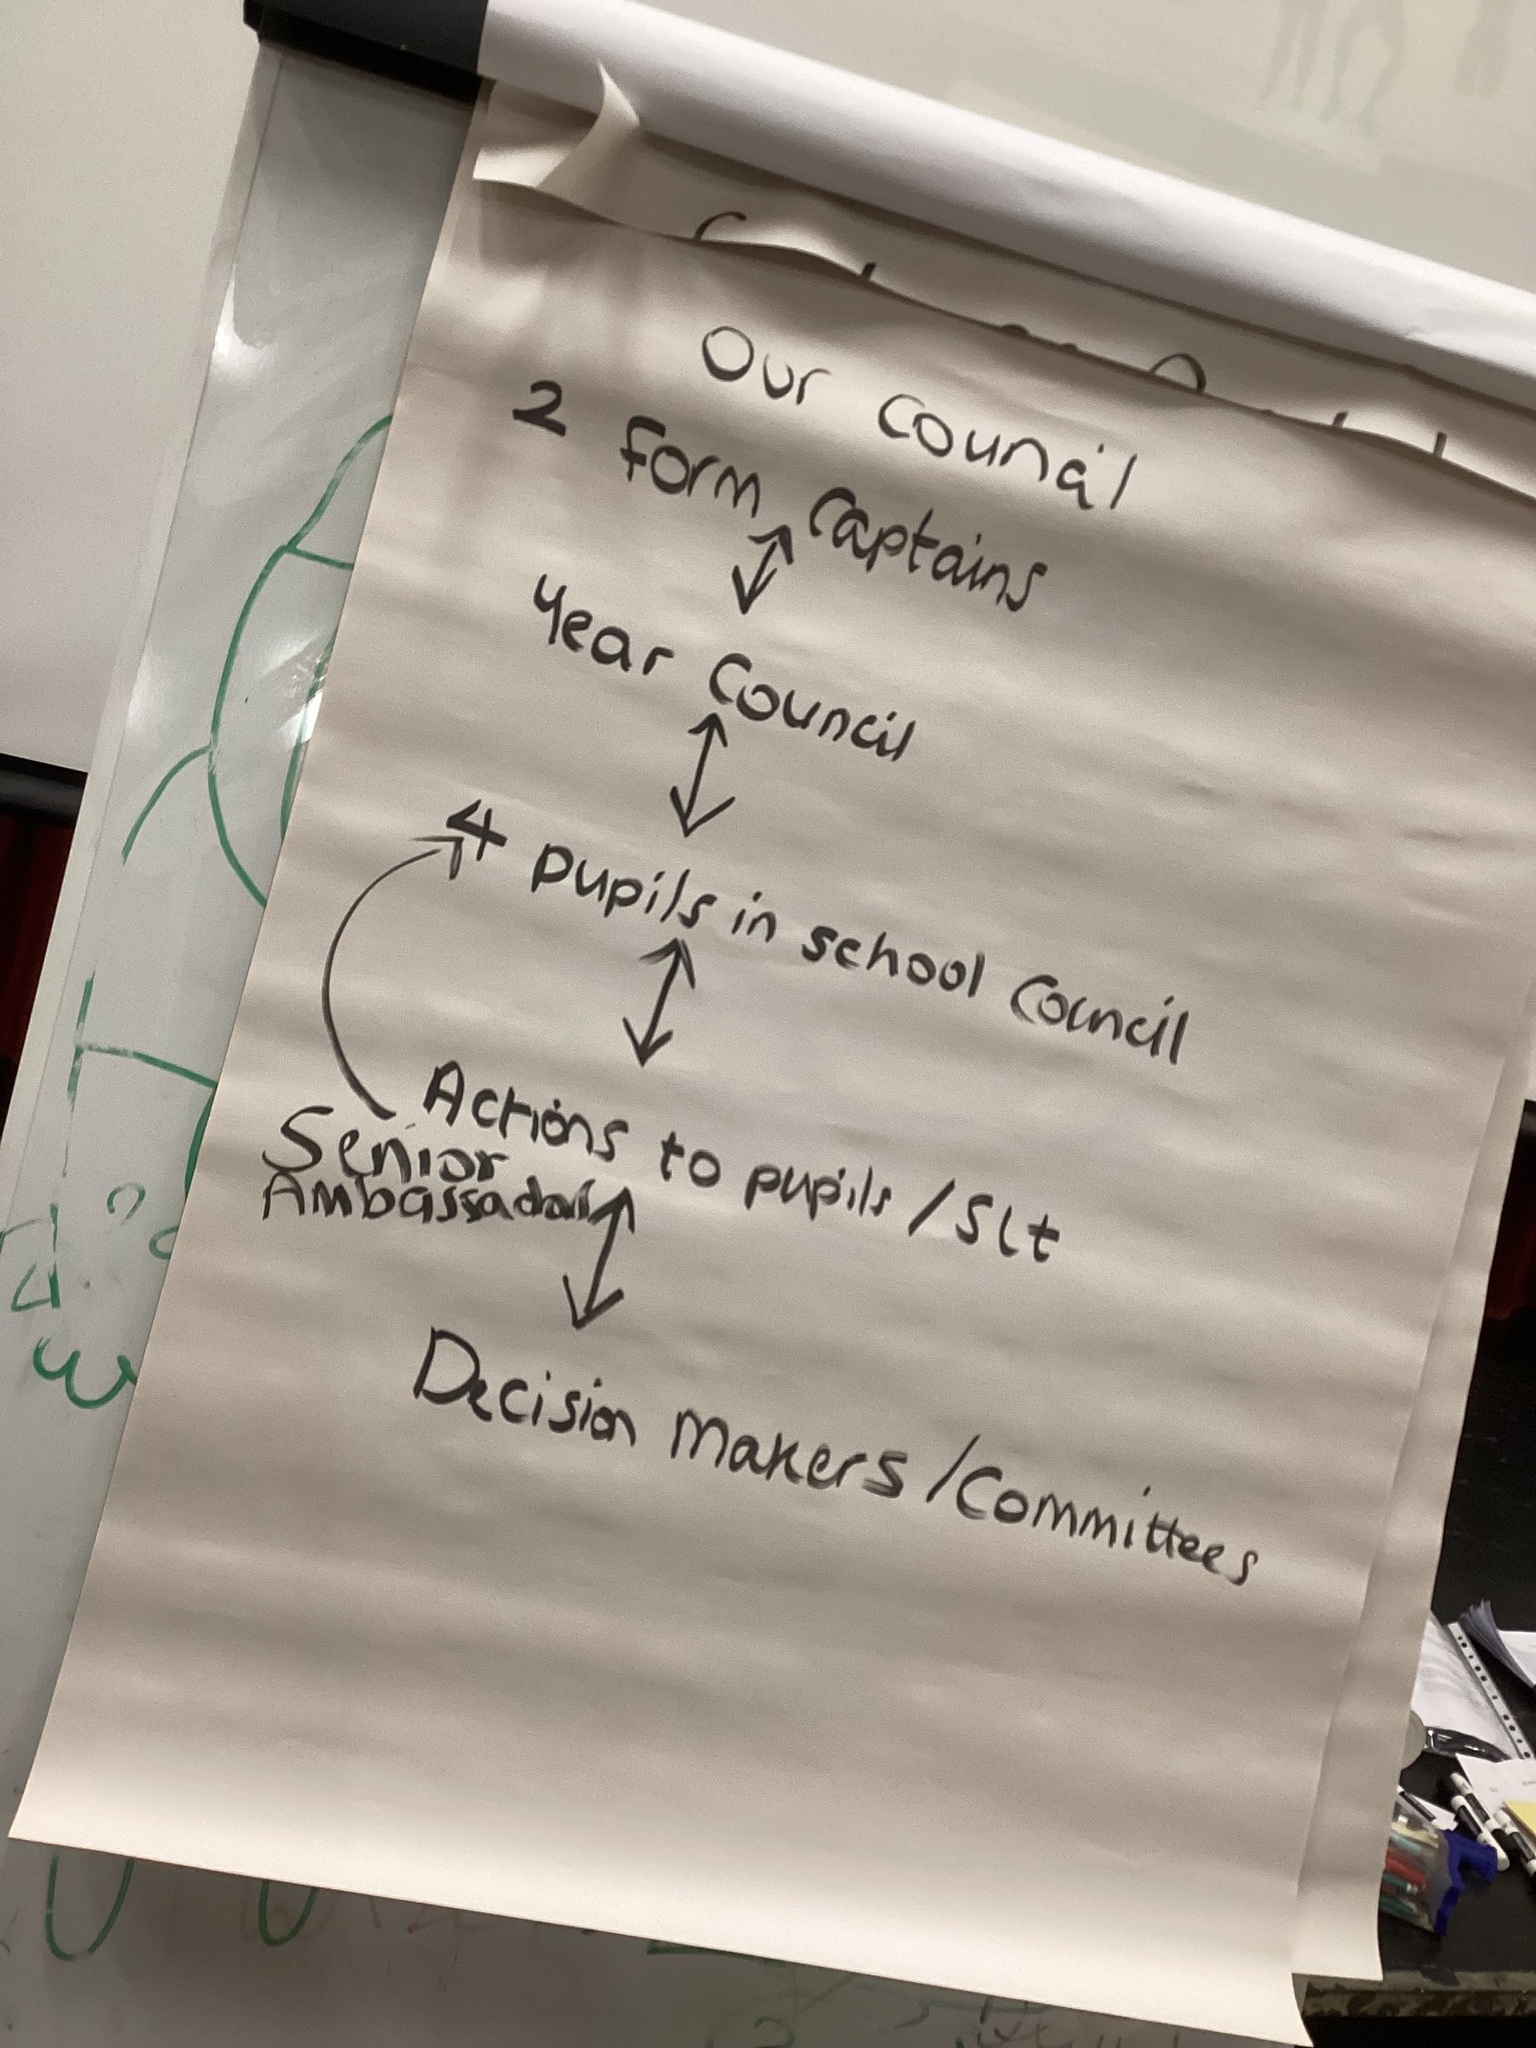 Our Council
2 form Captains
Year Council
4 pupils in school Council
Actions to pupils / Slt
Senior
Ambassadors
Decision Makers / Committees